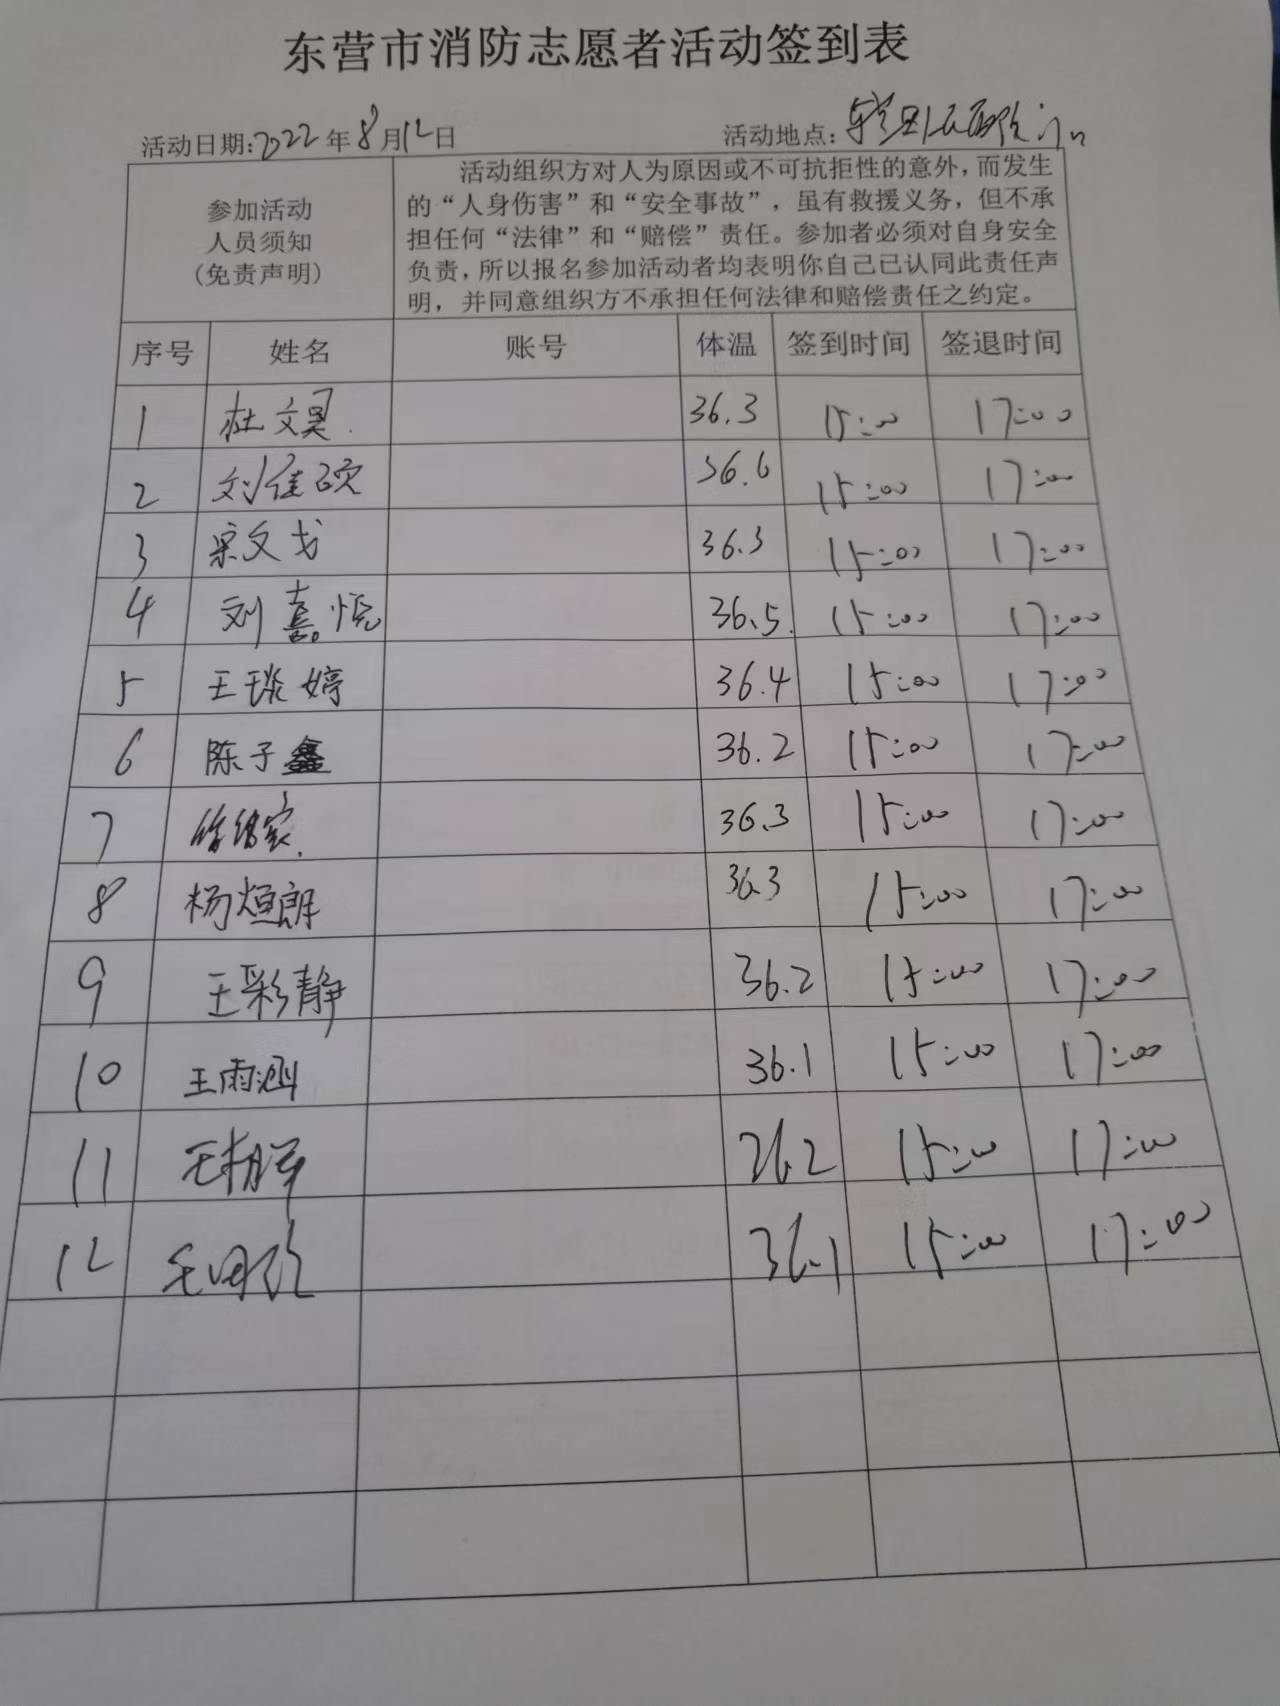 东营市消防志愿者活动签到表
活动日期:2022年8月12日 活动地点:
参加活动
人员须知
(免责声明)
活动组织方对人为原因或不可抗拒性的意外,而发生
的“人身伤害”和“安全事故”,虽有救援义务,但不承
担任何“法律”和“赔偿”责任。参加者必须对自身安全
负责,所以报名参加活动者均表明你自己已认同此责任声
明,并同意组织方不承担任何法律和赔偿责任之约定。
序号 姓名 账号 体温 签到时间 签退时间
1 杜文昊 36.3 15:00 17:00
2 刘佳硕 36.6 15:00 17:00
3 宋文戈 36.3 15:00 17:00
4 刘嘉悦 36.5 15:00 17:00
5 王琰婷 36.4 15:00 17:00
6 陈子鑫 36.2 15:00 17:00
7 36.3 15:00 17:00
8 杨烜朗 36.3 15:00 17:00
9 王彩静 36.2 15:00 17:00
10 王雨涵 36.1 15:00 17:00
11 36.2 15:00 17:00
12 36.1 15:00 17:00